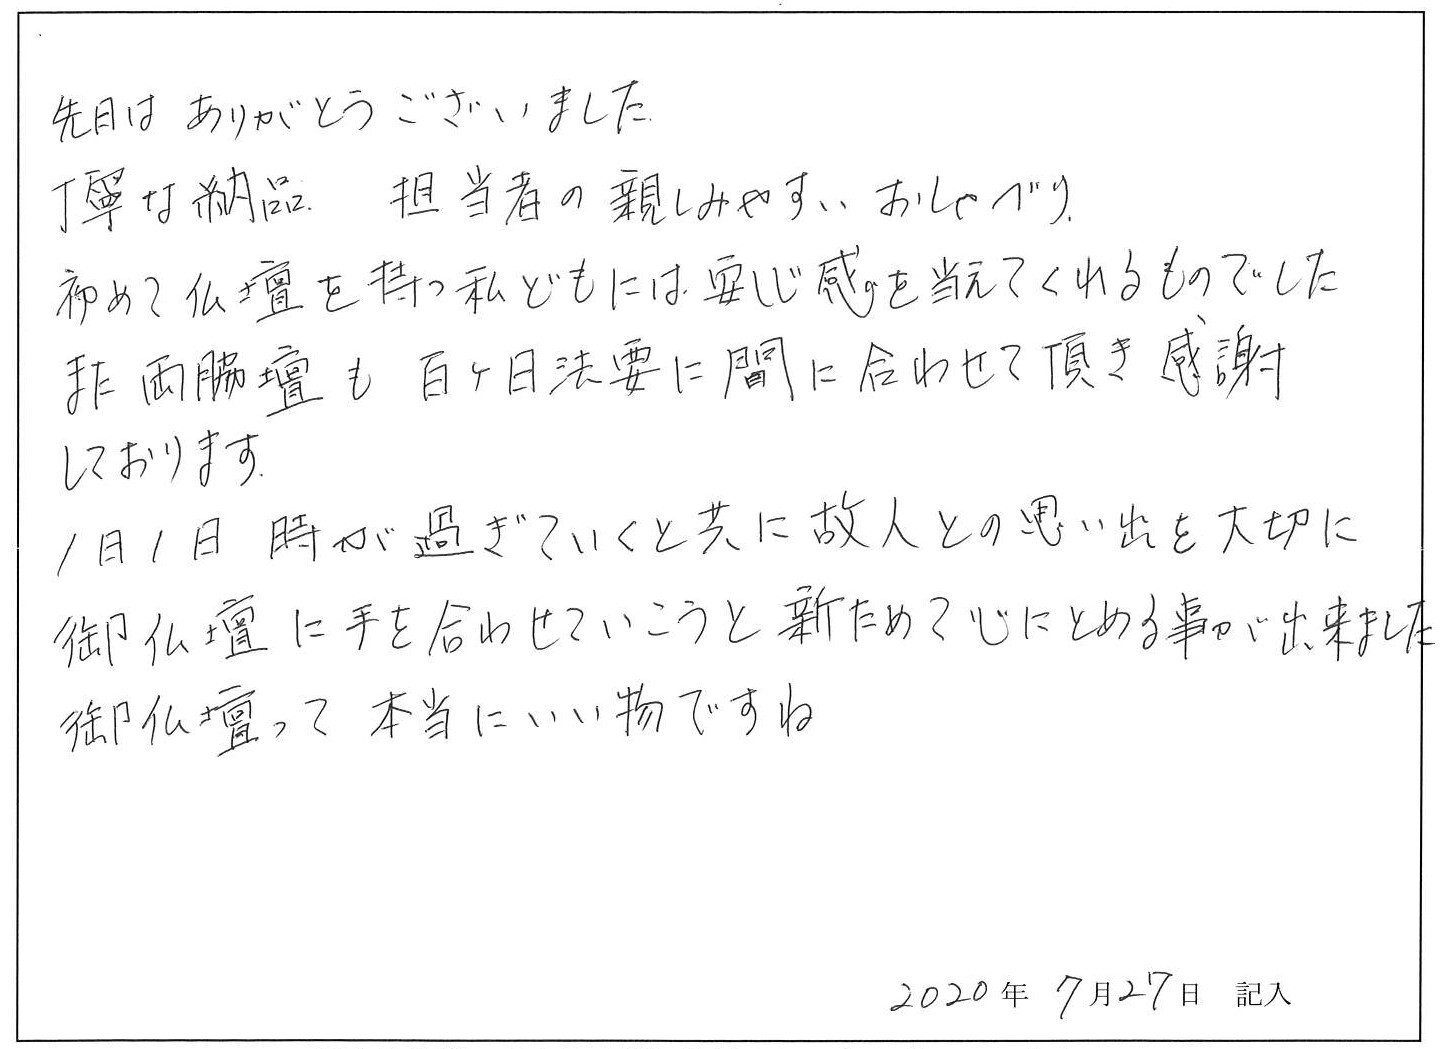 先日は ありがとうございました.
丁寧な納品. 担当者の親しみやすい おしゃべり.
初めて仏壇を持つ私どもには 安しじ感を当えてくれるものでした
また 両脇壇も 百ヶ日法要に間に合わせて頂き 感謝
しております.
1日1日 時が過ぎていくと共に故人との思い出を大切に
御仏壇に手を合わせていこうと新ためて心にとめる事が出来ました
御仏壇って 本当にいい物ですね
2020年 7月27日 記入